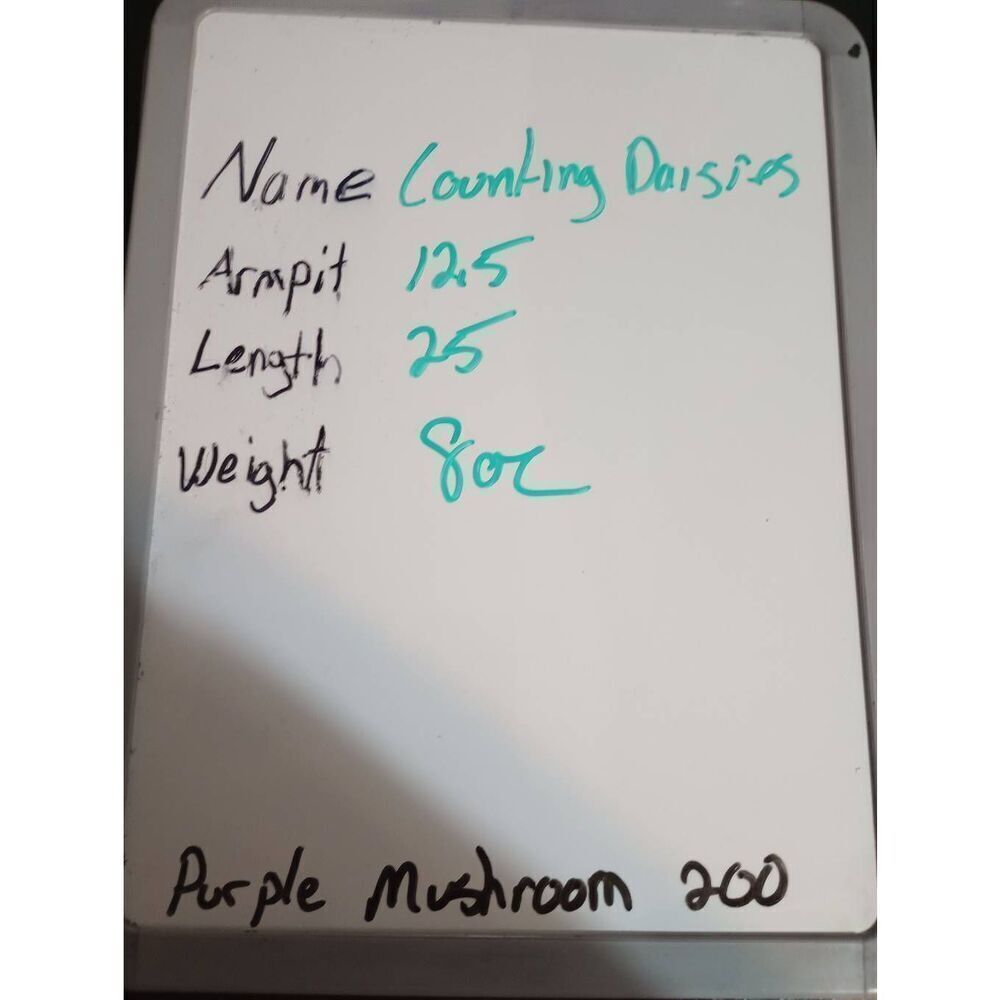 Name Counting Daisies
Armpit 12.5
Length 25
Weight 8oz
Purple Mushroom 200